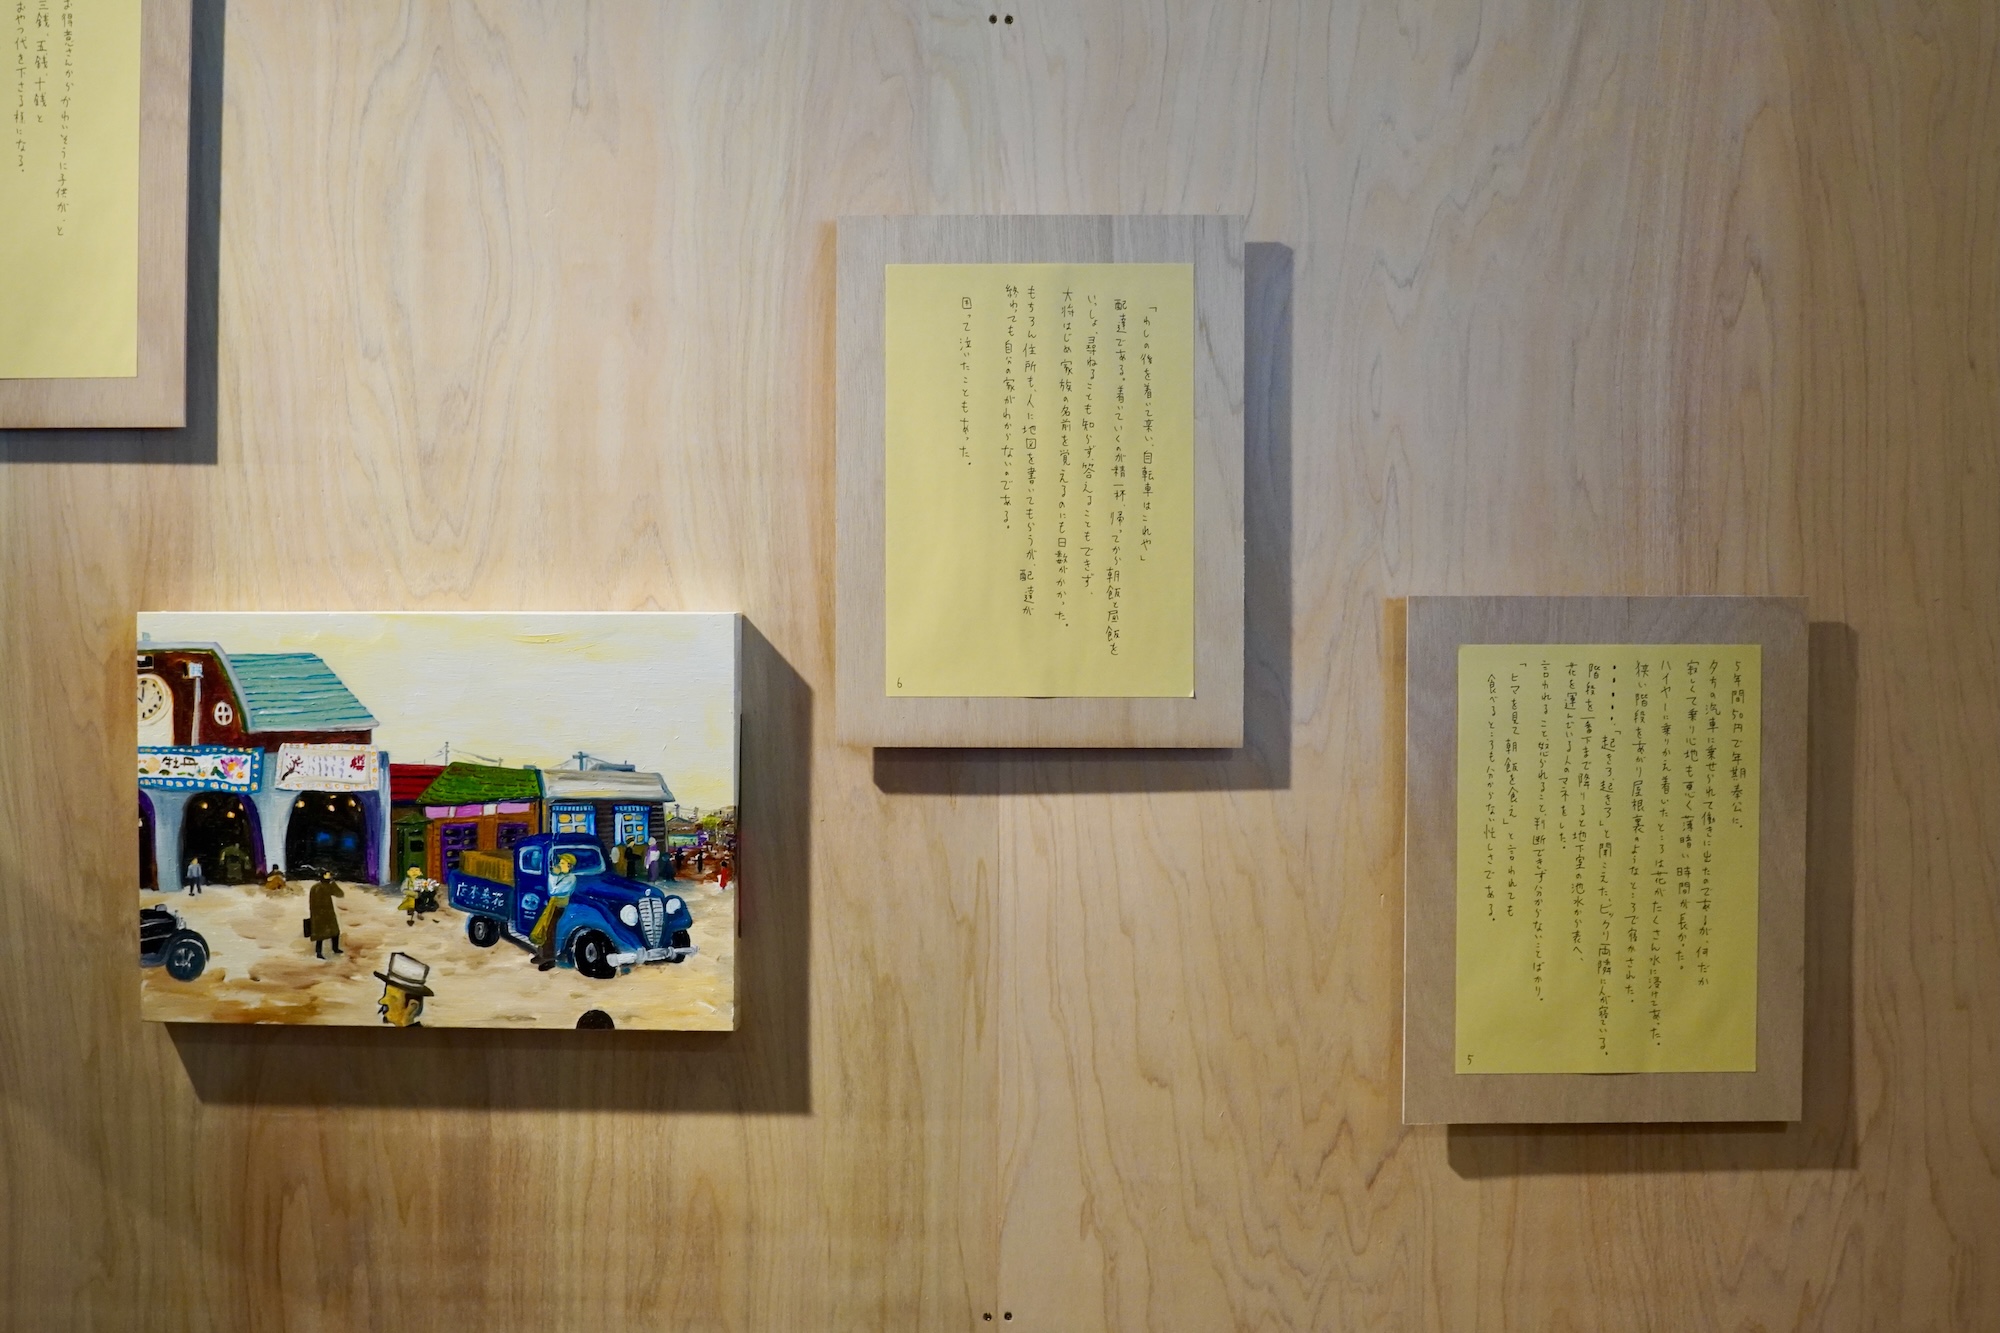 5年間50円で年期奉公に。
夕方の汽車に乗せられて働きに出たのであるが、何だか
寂しくて乗り心地も悪く薄暗い時間が長かった。
ハイヤーに乗りかえ着いたところは花がたくさん水に漬けてあった。
狭い階段をあがり屋根裏のようなところで寝かされた。
・・・・・・「起きろ、起きろ」と聞こえた、ビックリ両隣に人が寝ている。
階段を一番下まで降りると地下室の池水から表へ、
花を運んでいる人のマネをした。
言われること、怒られること、判断できず分からないことばかり。
「ヒマを見て朝飯を食え」と言われても
食べるところも分からない忙しさである。
5
「わしの後を着いて来い、自転車はこれや」
配達である。着いていくのが精一杯、帰ってから朝飯と昼飯を
いっしょ、尋ねることも知らず、答えることもできず、
大将はじめ家族の名前を覚えるのにも日数がかかった。
もちろん住所も、人に地図を書いてもらうが、配達が
終わっても自分の家がわからないのである。
困って泣いたこともあった。
6
お得意さんからかわいそうに子供が、と
三銭、五銭、十銭と
おやつ代を下さる様になる。
牡丹
櫻
花茶本店